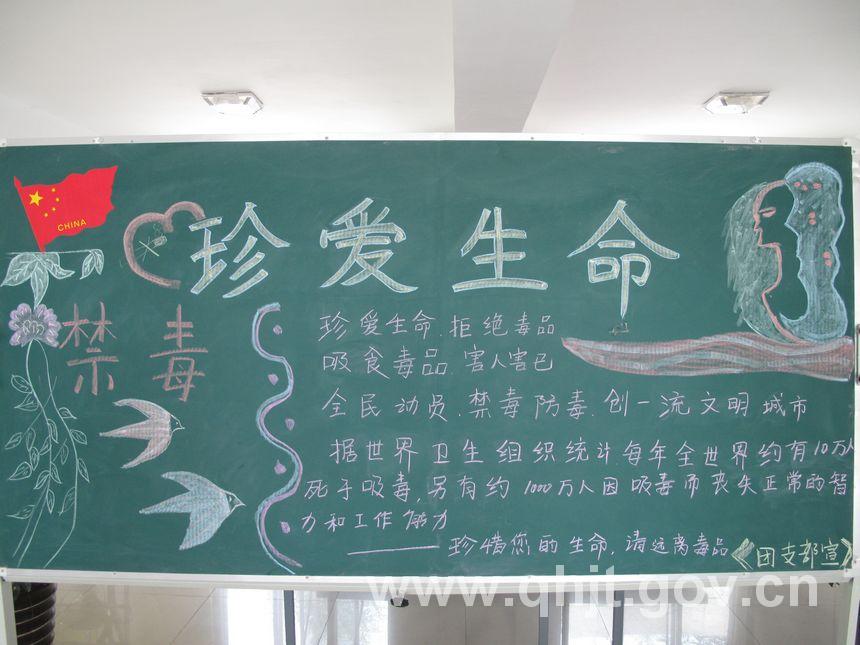 CHINA
珍爱生命
禁毒
珍爱生命.拒绝毒品
吸食毒品.害人害己
全民动员.禁毒防毒.创一流文明城市
据世界卫生组织统计.每年全世界约有10万人
死于吸毒,另有约1000万人因吸毒而丧失正常的智
力和工作能力
——珍惜您的生命,请远离毒品
《团支部宣》
www.qhit.gov.cn